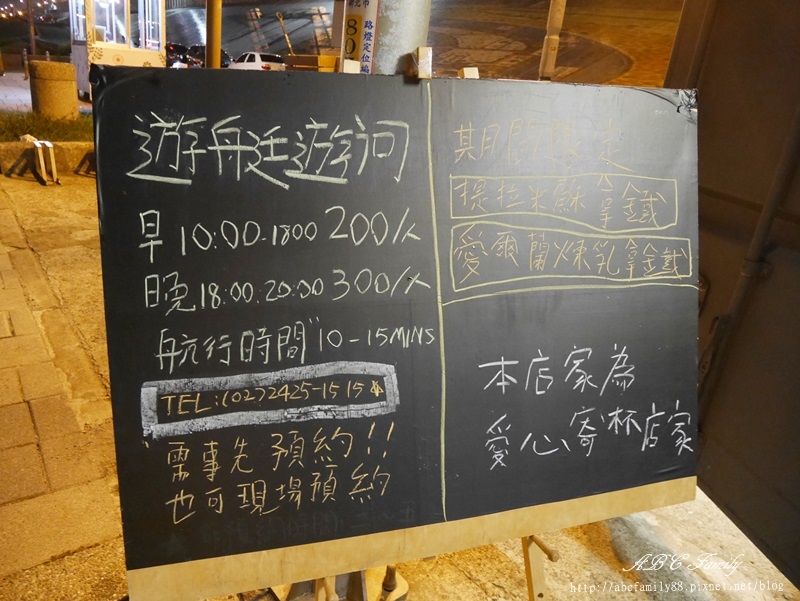 路燈定位編
80
遊艇遊河
早 10:00-1800 200/人
晚 18:00-20:00 300/人
航行時間"10-15MINS
TEL:(02)2425-1515
需事先預約!!
也可現場預約
期間限定
提拉米蘇拿鐵
愛爾蘭煉乳拿鐵
本店家為
愛心寄杯店家
ABC Family
http://abcfamily88.pixnet.net/blog